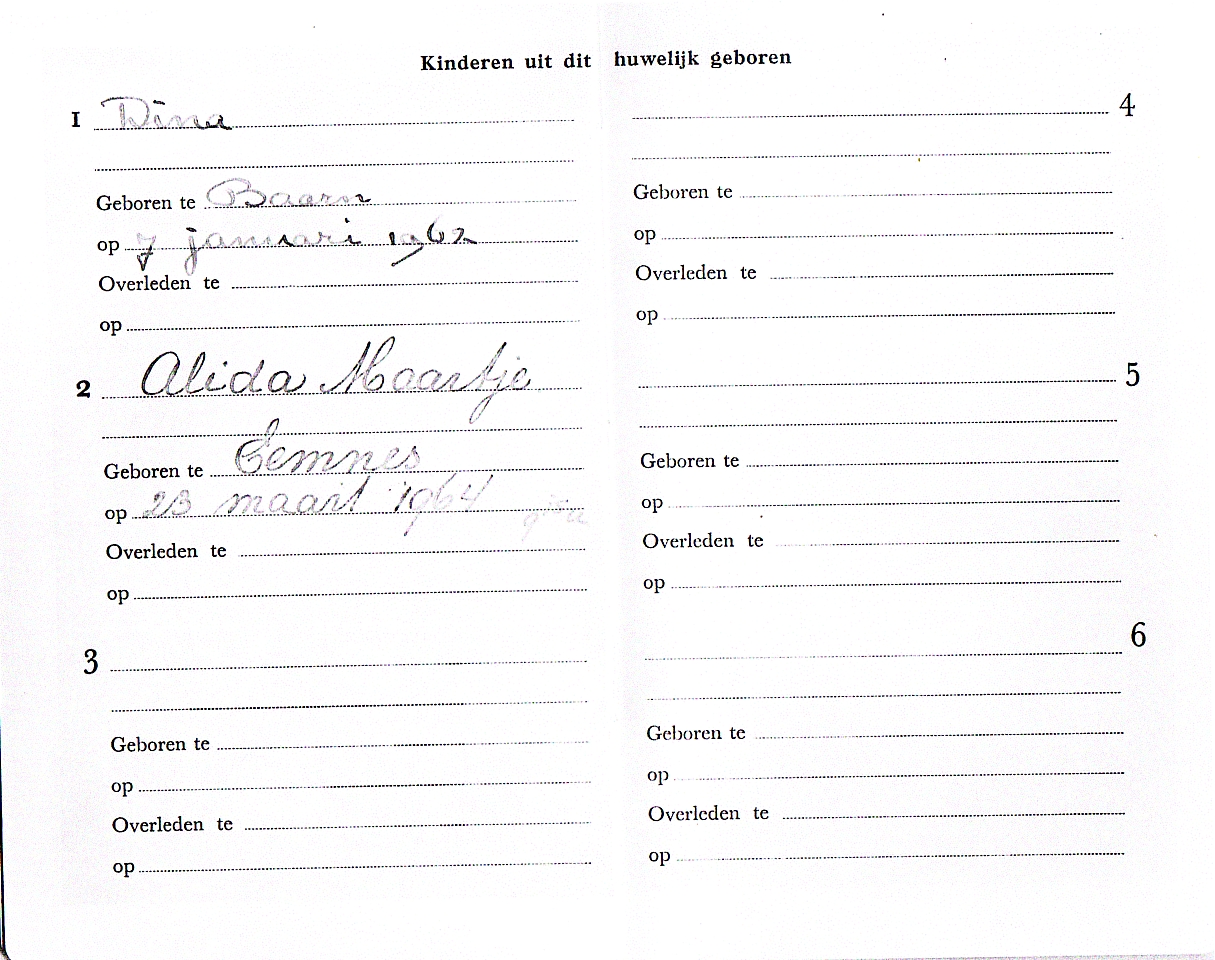 Kinderen uit dit huwelijk geboren
1 Dina
Geboren te Baarn
op 7 januari 1962
Overleden te
op
2 Alida Maartje
Geboren te Eemnes
op 23 maart 1964
Overleden te
op
3
Geboren te
op
Overleden te
op
4
Geboren te
op
Overleden te
op
5
Geboren te
op
Overleden te
op
6
Geboren te
op
Overleden te
op